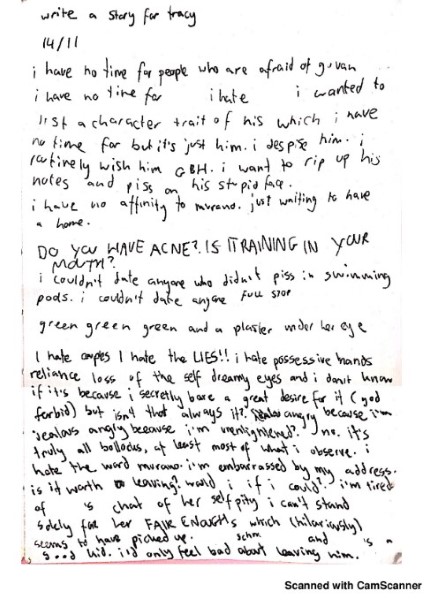 write a story for tracy
14/11
i have no time for people who are afraid of govan
i have no time for i hate i wanted to
list a character trait of his which i have
no time for but it's just him. i despise him. i
routinely wish him GBH. i want to rip up his
notes and piss on his stupid face.
i have no affinity to murano. just waiting to have
a home.
DO YOU HAVE ACNE? IS IT RAINING IN YOUR
MOUTH?
i couldn't date anyone who didn't piss in swimming
pools. i couldn't date anyone FULL STOP
green green green and a plaster under her eye
I hate couples I hate the LIES!! i hate possessive hands
reliance loss of the self dreamy eyes and i don't know
if it's because i secretly bare a great desire for it (god
forbid) but isn't that always it? angry because i'm
jealous angry because i'm unenlightened? no. it's
truly all bollocks, at least most of what i observe. i
hate the word murano. i'm embarrassed by my address.
is it worth leaving? would i if i could? i'm tired
of 's chat of her self pity i can't stand
solely for her FAIR ENOUGHs which (hilariously)
seems to have picked up. and is a
s...d kid. i'd only feel bad about leaving him.
Scanned with CamScanner